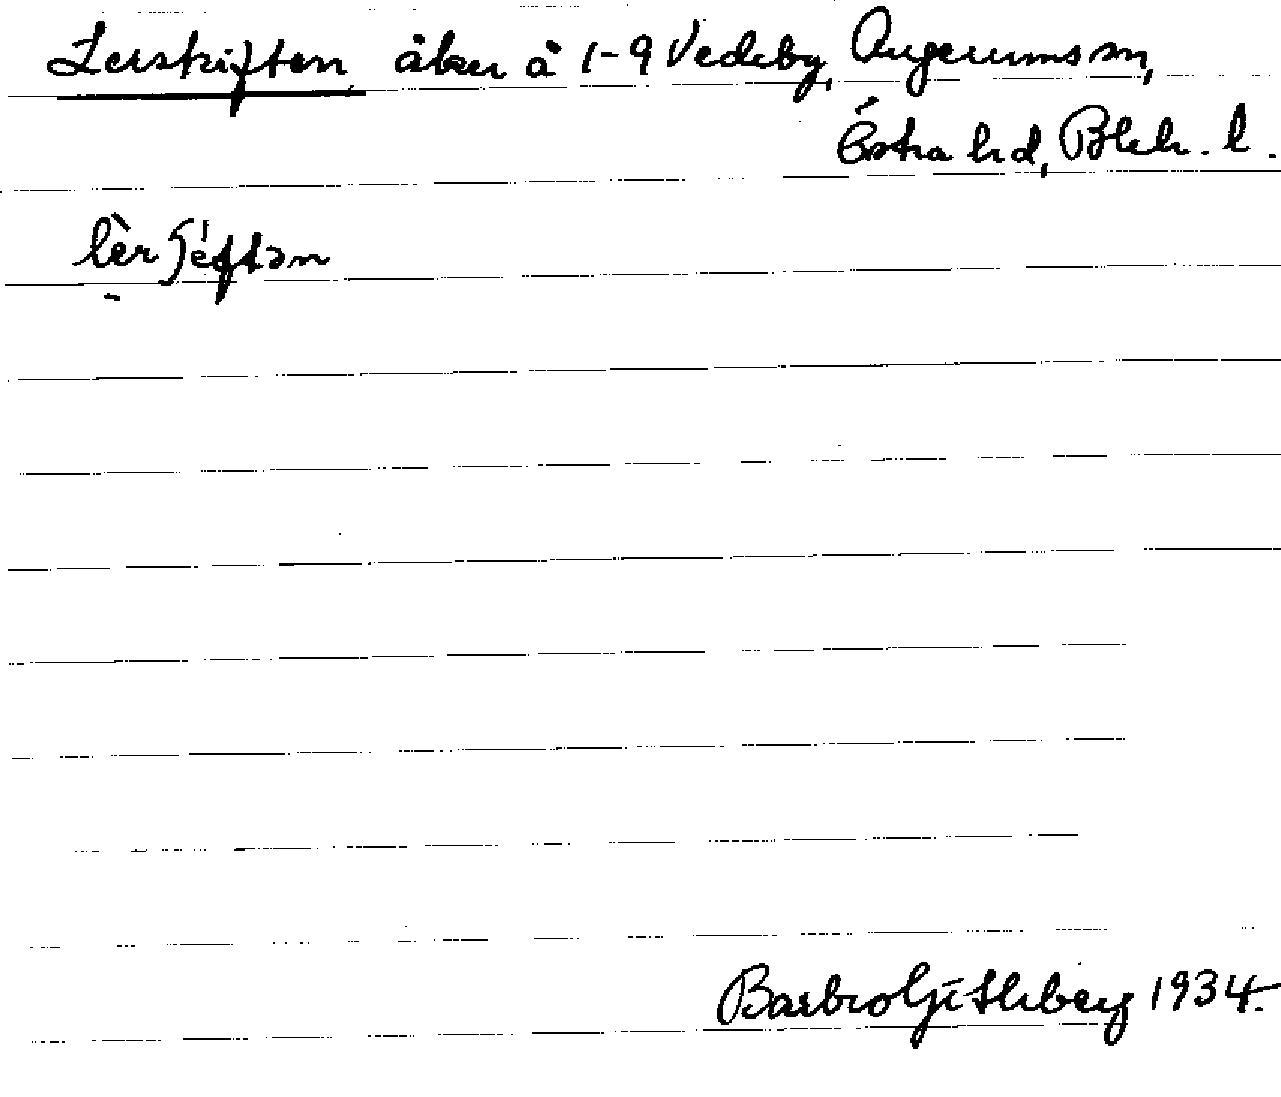 Lerskiften åker å 1-9 Vedeby, Augerums sn,
Östra hd, Blek. l.
Barbro Götlberg 1934.